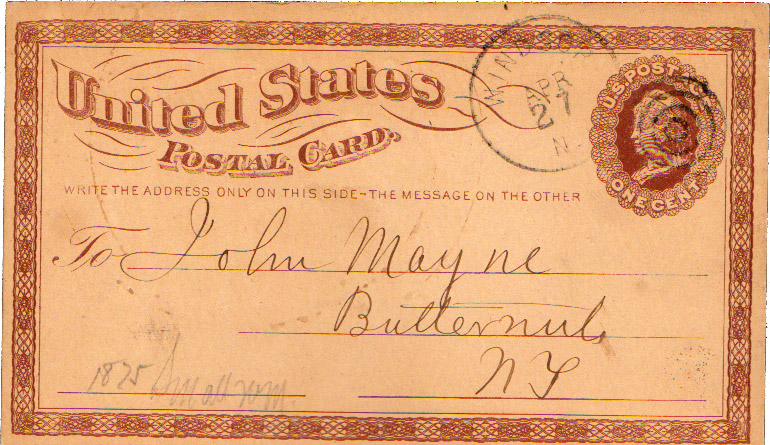 United States
POSTAL CARD.
WRITE THE ADDRESS ONLY ON THIS SIDE-THE MESSAGE ON THE OTHER
U.S. POSTAGE
ONE CENT
WINDSOR
APR
27
N.
To John Mayne
Butternuts
NY
1875